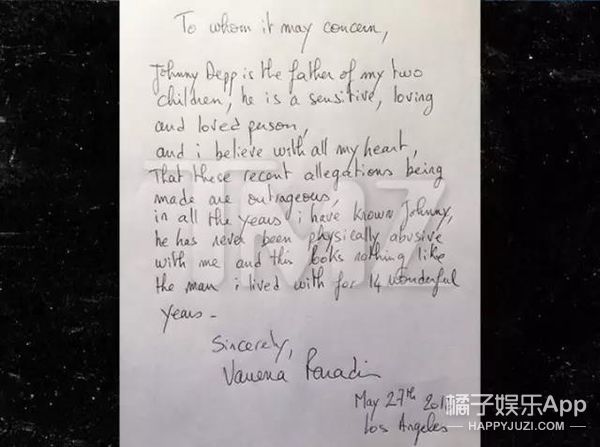 To whom it may concern,
Johnny Depp is the father of my two
children, he is a sensitive, loving
and loved person,
and i believe with all my heart,
That these recent allegations being
made are outrageous,
in all the years i have known Johnny,
he has never been physically abusive
with me and this looks nothing like
the man i lived with for 14 wonderful
years -
Sincerely,
Vanessa Paradis
May 27th 201
Los Angeles
TMZ
橘子娱乐App
HAPPYJUZI.COM